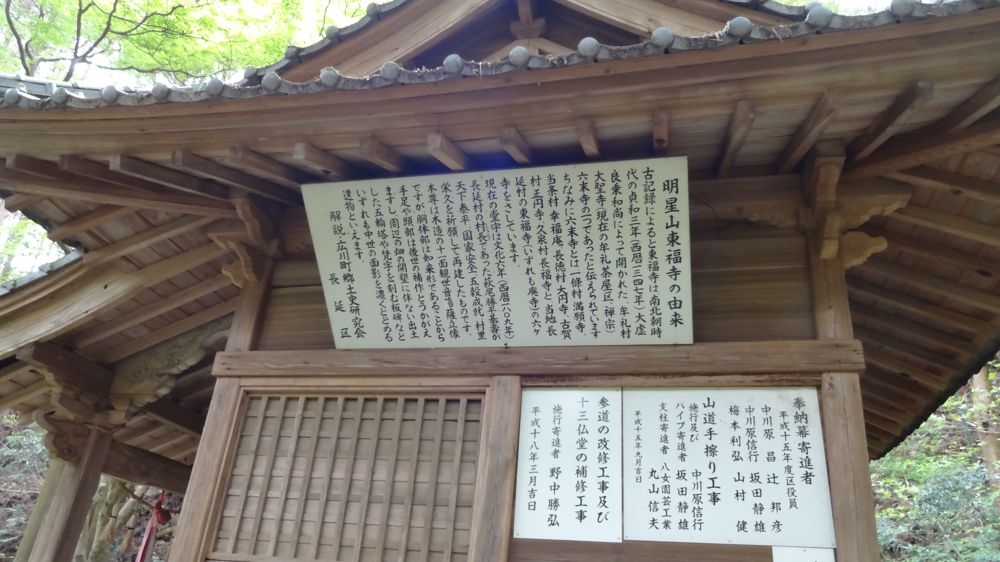 明星山東福寺の由来
古記録によると東福寺は、南北朝時
代の貞和三年(西暦一三四七年)大虚
良乗和尚によって開かれた、牟礼村
大聖寺(現在の牟礼茶屋区)(禅宗)
六末寺の一つであったと伝えられています
ちなみに六末寺とは一條村満願寺、
当条村幸福庵、長徳村大円寺、古賀
村正円寺、久泉村長福寺と当地長
延村の東福寺(いずれも廃寺)の六ヶ
寺をさしています
現在の堂宇は文化六年(西暦一八〇九年)
長延村の村長であった萩尾勝平基壽が
天下泰平、国家安全、五穀成就、村里
栄久を祈願して再建したものです。
本尊は木造の十一面観世音菩薩立像
ですが、胴体部は如来形であることから
手足や頭部は後世の補作とうかがえ
ますし、周辺の畑の開望に伴ない出土
した五輪塔や梵字を刻む板碑など
いずれも中世の面影を濃くとどめる
遺物といえます。
解説・広川町郷土史研究会
長延区
奉納幕寄進者
平成十五年度区役員
中川原昌 辻邦彦
中川原信行 坂田静雄
梅本利弘 山村健
山道手擦り工事
施行及び 中川原信行
パイプ寄進者 坂田静雄
支柱寄進者 八女園芸工業
丸山信夫
平成十五年九月吉日
参道の改修工事及び
十三仏堂の補修工事
施行寄進者 野中勝弘
平成十八年三月吉日